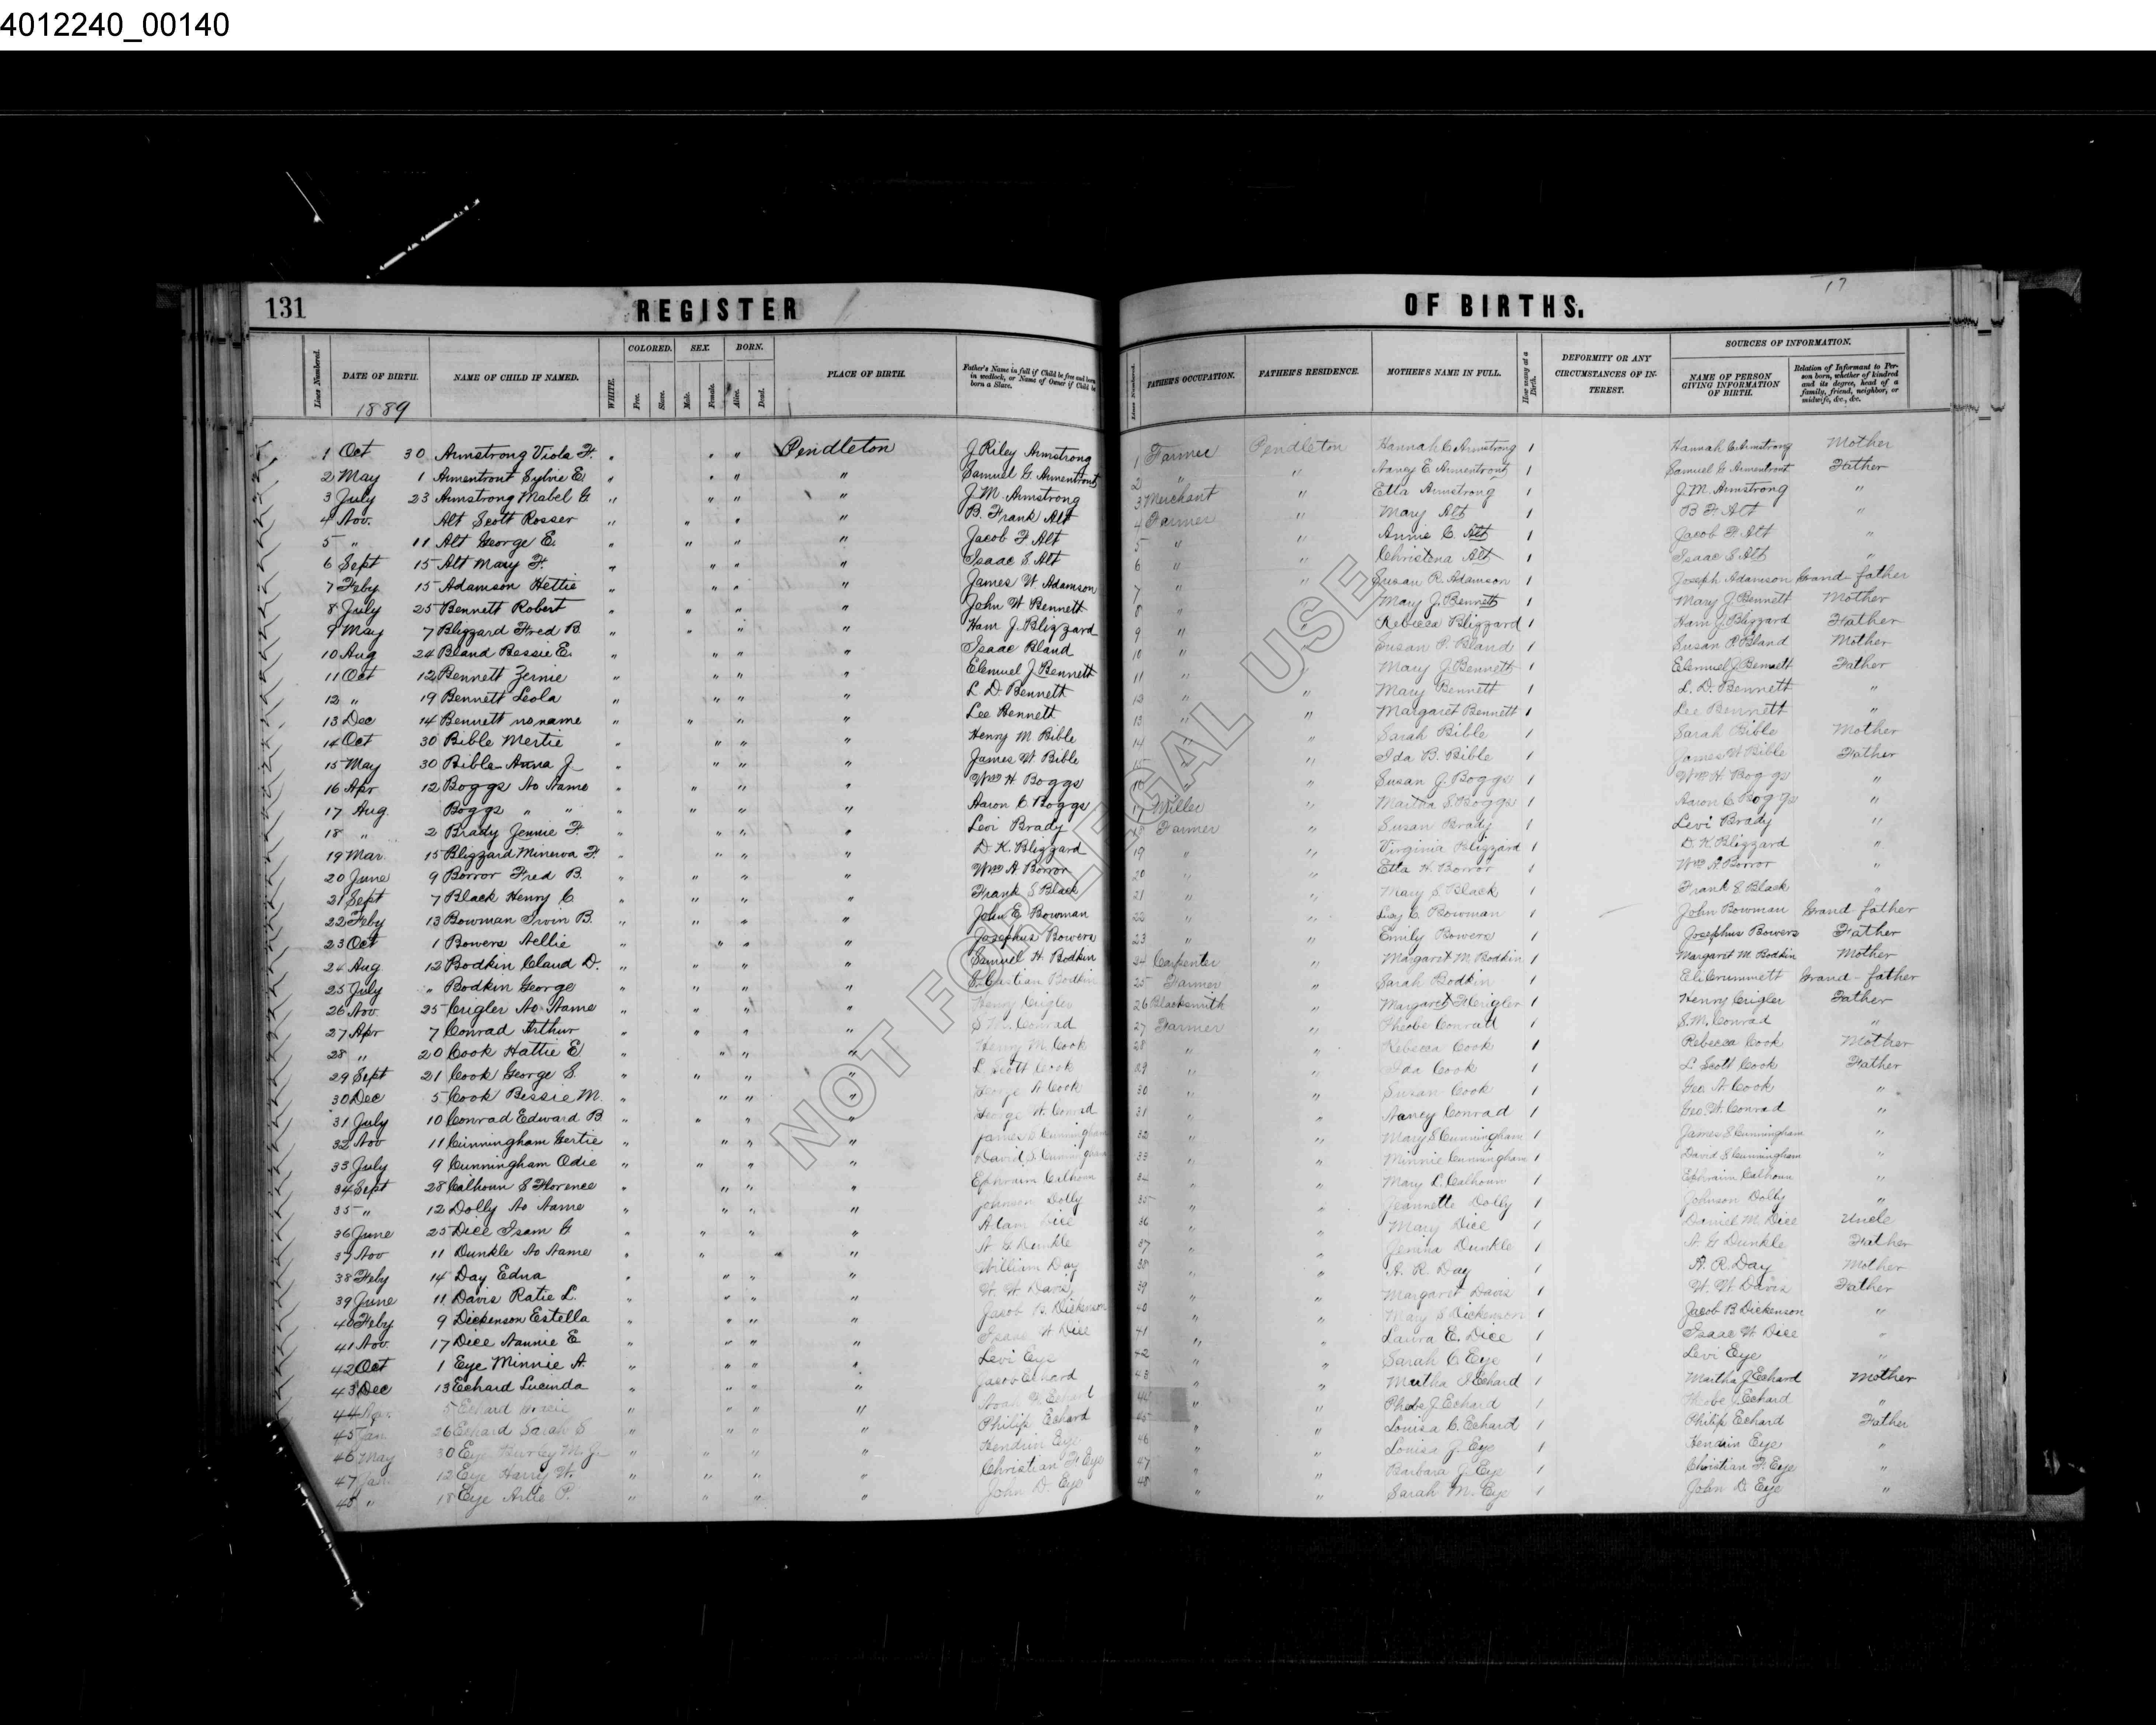 4012240_00140
131 REGISTER OF BIRTHS. 17
Lines Numbered. DATE OF BIRTH. 1889 NAME OF CHILD IF NAMED. WHITE. COLORED. Free. Slave. SEX. Male. Female. BORN. Alive. Dead. PLACE OF BIRTH. Father's Name in full if Child be free and born in wedlock, or Name of Owner if Child be born a Slave. Lines Numbered. FATHER'S OCCUPATION. FATHER'S RESIDENCE. MOTHER'S NAME IN FULL. How many at a Birth. DEFORMITY OR ANY CIRCUMSTANCES OF INTEREST. SOURCES OF INFORMATION. NAME OF PERSON GIVING INFORMATION OF BIRTH. Relation of Informant to Person born, whether of kindred and its degree, head of a family, friend, neighbor, or midwife, &c., &c.
1 Oct 30 Armstrong Viola F. " " " Pendleton J Riley Armstrong 1 Farmer Pendleton Hannah C Armstrong 1 Hannah C Armstrong Mother
2 May 1 Armentrout Sylvie E. " " " " Samuel G. Armentrout 2 " " Nancy E Armentrout 1 Samuel G Armentrout Father
3 July 23 Armstrong Mabel G " " " " J. M. Armstrong 3 Merchant " Etta Armstrong 1 J. M. Armstrong "
4 Nov. Alt Scott Rosser " " " " B. Frank Alt 4 Farmer " Mary Alt 1 B F Alt "
5 " 11 Alt George E. " " " " Jacob F Alt 5 " " Annie C. Alt 1 Jacob F. Alt "
6 Sept 15 Alt Mary F. " " " " Isaac S. Alt 6 " " Christena Alt 1 Isaac S Alt "
7 Feby 15 Adamson Hettie " " " " James W Adamson 7 " " Susan R. Adamson 1 Joseph Adamson Grand-father
8 July 25 Bennett Robert " " " " John W Bennett 8 " " Mary J. Bennett 1 Mary J. Bennett Mother
9 May 7 Blizzard Fred B. " " " " Ham J. Blizzard 9 " " Rebecca Blizzard 1 Ham J. Blizzard Father
10 Aug 24 Bland Bessie E. " " " " Isaac Bland 10 " " Susan P. Bland 1 Susan P. Bland Mother
11 Oct 12 Bennett Zernie " " " " Elemuel J Bennett 11 " " Mary J. Bennett 1 Elemuel J. Bennett Father
12 " 19 Bennett Leola " " " " L. D. Bennett 12 " " Mary Bennett 1 L. D. Bennett "
13 Dec 14 Bennett no name " " " " Lee Bennett 13 " " Margaret Bennett 1 Lee Bennett "
14 Oct 30 Bible Mertie " " " " Henry M Bible 14 " " Sarah Bible 1 Sarah Bible Mother
15 May 30 Bible Anna J. " " " " James W Bible 15 " " Ida B. Bible 1 James W Bible Father
16 Apr 12 Boggs No Name " " " " Wm H Boggs 16 " " Susan J. Boggs 1 Wm H. Boggs "
17 Aug. Boggs " " " " " " Aaron C Boggs 17 Miller " Martha S. Boggs 1 Aaron C Boggs "
18 " 2 Brady Jennie F. " " " " Levi Brady 18 Farmer " Susan Brady 1 Levi Brady "
19 Mar. 15 Blizzard Minerva F. " " " " D. K. Blizzard 19 " " Virginia Blizzard 1 D. K. Blizzard "
20 June 9 Borror Fred B. " " " " Wm A Borror 20 " " Etta H. Borror 1 Wm A Borror "
21 Sept 7 Black Henry C " " " " Frank S Black 21 " " Mary S Black 1 Frank S Black "
22 Feby 13 Bowman Irvin B. " " " " John E Bowman 22 " " Lucy C Bowman 1 John Bowman Grand-father
23 Oct 1 Bowers Nellie " " " " Josephus Bowers 23 " " Emily Bowers 1 Josephus Bowers Father
24 Aug. 12 Bodkin Claud D. " " " " Samuel H. Bodkin 24 Carpenter " Margaret M Bodkin 1 Margaret M. Bodkin Mother
25 July " Bodkin George " " " " Bodkin 25 Farmer " Sarah Bodkin 1 Eli Crummett Grand-father
26 Nov 25 Crigler No Name " " " " Henry Crigler 26 Blacksmith " Margaret Crigler 1 Henry Crigler Father
27 Apr 7 Conrad Arthur " " " " S M. Conrad 27 Farmer " Phebe Conrad 1 S. M. Conrad "
28 " 20 Cook Hattie E " " " " Henry M. Cook 28 " " Rebecca Cook 1 Rebecca Cook Mother
29 Sept 21 Cook George S. " " " " L. Scott Cook 29 " " Ida Cook 1 L. Scott Cook Father
30 Dec 5 Cook Bessie M. " " " " George A Cook 30 " " Susan Cook 1 Geo. A. Cook "
31 July 10 Conrad Edward B " " " " George W. Conrad 31 " " Nancy Conrad 1 Geo. W. Conrad "
32 Nov 11 Cunningham Gertie " " " " James S Cunningham 32 " " Mary S Cunningham 1 James S Cunningham "
33 July 9 Cunningham Odie " " " " David S. Cunningham 33 " " Minnie Cunningham 1 David S Cunningham "
34 Sept 28 Calhoun S Florence " " " " Ephraim Calhoun 34 " " Mary L. Calhoun 1 Ephraim Calhoun "
35 " 12 Dolly No Name " " " " Johnson Dolly 35 " " Jeannette Dolly 1 Johnson Dolly "
36 June 25 Dice Isom G " " " " Adam Dice 36 " " Mary Dice 1 Daniel M. Dice Uncle
37 Nov 11 Dunkle No Name " " " " A G Dunkle 37 " " Dunkle 1 A G Dunkle Father
38 Feby 14 Day Edna " " " " William Day 38 " " A. R. Day 1 A. R. Day Mother
39 June 11 Davis Katie L. " " " " W. W Davis 39 " " Margaret Davis 1 W. W. Davis Father
40 Feby 9 Dickenson Estella " " " " Jacob B. Dickenson 40 " " Mary S Dickenson 1 Jacob B Dickenson "
41 Nov. 17 Dice Nannie E " " " " Isaac W Dice 41 " " Laura E. Dice 1 Isaac W Dice "
42 Oct 1 Eye Minnie A. " " " " Levi Eye 42 " " Sarah C. Eye 1 Levi Eye "
43 Dec 13 Echard Lucinda " " " " Jacob Echard 43 " " Martha J Echard 1 Martha J. Echard Mother
44 5 Echard " " " " Noah Echard 44 " " Phebe J. Echard 1 Phebe J. Echard "
45 Jan 26 Echard Sarah S " " " " Philip Echard 45 " " Louisa C. Echard 1 Philip Echard Father
46 May 30 Eye M. J. " " " " Hendrin Eye 46 " " Louisa J. Eye 1 Hendrin Eye "
47 12 Eye Harry W. " " " " Christian F Eye 47 " " Barbara J. Eye 1 Christian F. Eye "
48 " 18 Eye Artie P. " " " " John D. Eye 48 " " Sarah M. Eye 1 John D. Eye "
NOT FOR LEGAL USE